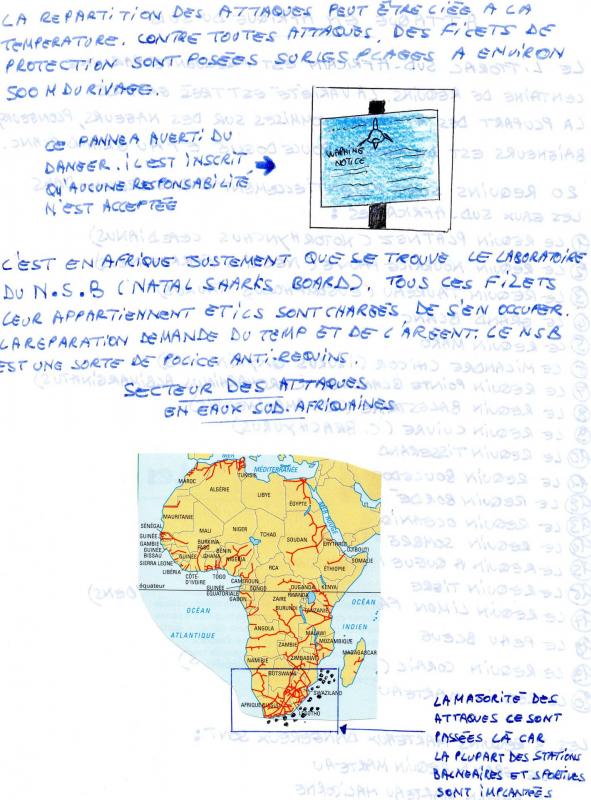 LA REPARTITION DES ATTAQUES PEUT ÊTRE LIÉE A LA
TEMPERATURE. CONTRE TOUTES ATTAQUES, DES FILETS DE
PROTECTION SONT POSÉES SUR LES PLAGES A ENVIRON
500 M DU RIVAGE.
CE PANNEA AVERTI DU
DANGER. IL EST INSCRIT
QU'AUCUNE RESPONSABILITÉ
N'EST ACCEPTÉE
WARNING
NOTICE
C'EST EN AFRIQUE JUSTEMENT QUE SE TROUVE LE LABORATOIRE
DU N.S.B (NATAL SAARKS BOARD). TOUS CES FILETS
LEUR APPARTIENNENT ET ILS SONT CHARGÉS DE S'EN OCCUPER.
LA REPARATION DEMANDE DU TEMP ET DE L'ARGENT. LE NSB
EST UNE SORTE DE POLICE ANTI-REQUINS.
SECTEUR DES ATTAQUES
EN EAUX SUD-AFRIQUAINES
MER
MÉDITERRANÉE
TUNISIE
MAROC
ALGÉRIE
LIBYE
ÉGYPTE
MER ROUGE
MAURITANIE
MALI
NIGER
TCHAD
SOUDAN
ERYTHRÉE
DJIBOUTI
SÉNÉGAL
GAMBIE
GUINÉE
BISSAU
GUINÉE
SIERRA LEONE
LIBÉRIA
CÔTE
D'IVOIRE
BURKINA
FASO
GHANA
TOGO
BÉNIN
NIGÉRIA
CAMEROUN
RCA
ÉTHIOPIE
SOMALIE
équateur
GUINÉE
ÉQUATORIALE
GABON
CONGO
ZAIRE
OUGANDA
KENYA
RWANDA
BURUNDI
TANZANIE
OCÉAN
ATLANTIQUE
OCÉAN
INDIEN
ANGOLA
ZAMBIE
MALAWI
MOZAMBIQUE
ZIMBABWE
MADAGASCAR
NAMIBIE
BOTSWANA
SWAZILAND
AFRIQUE DU SUD
LESOTHO
LA MAJORITÉ DES
ATTAQUES CE SONT
PASSÉES LÀ CAR
LA PLUPART DES STATIONS
BALNEAIRES ET SPORTIVES
SONT IMPLANTÉES